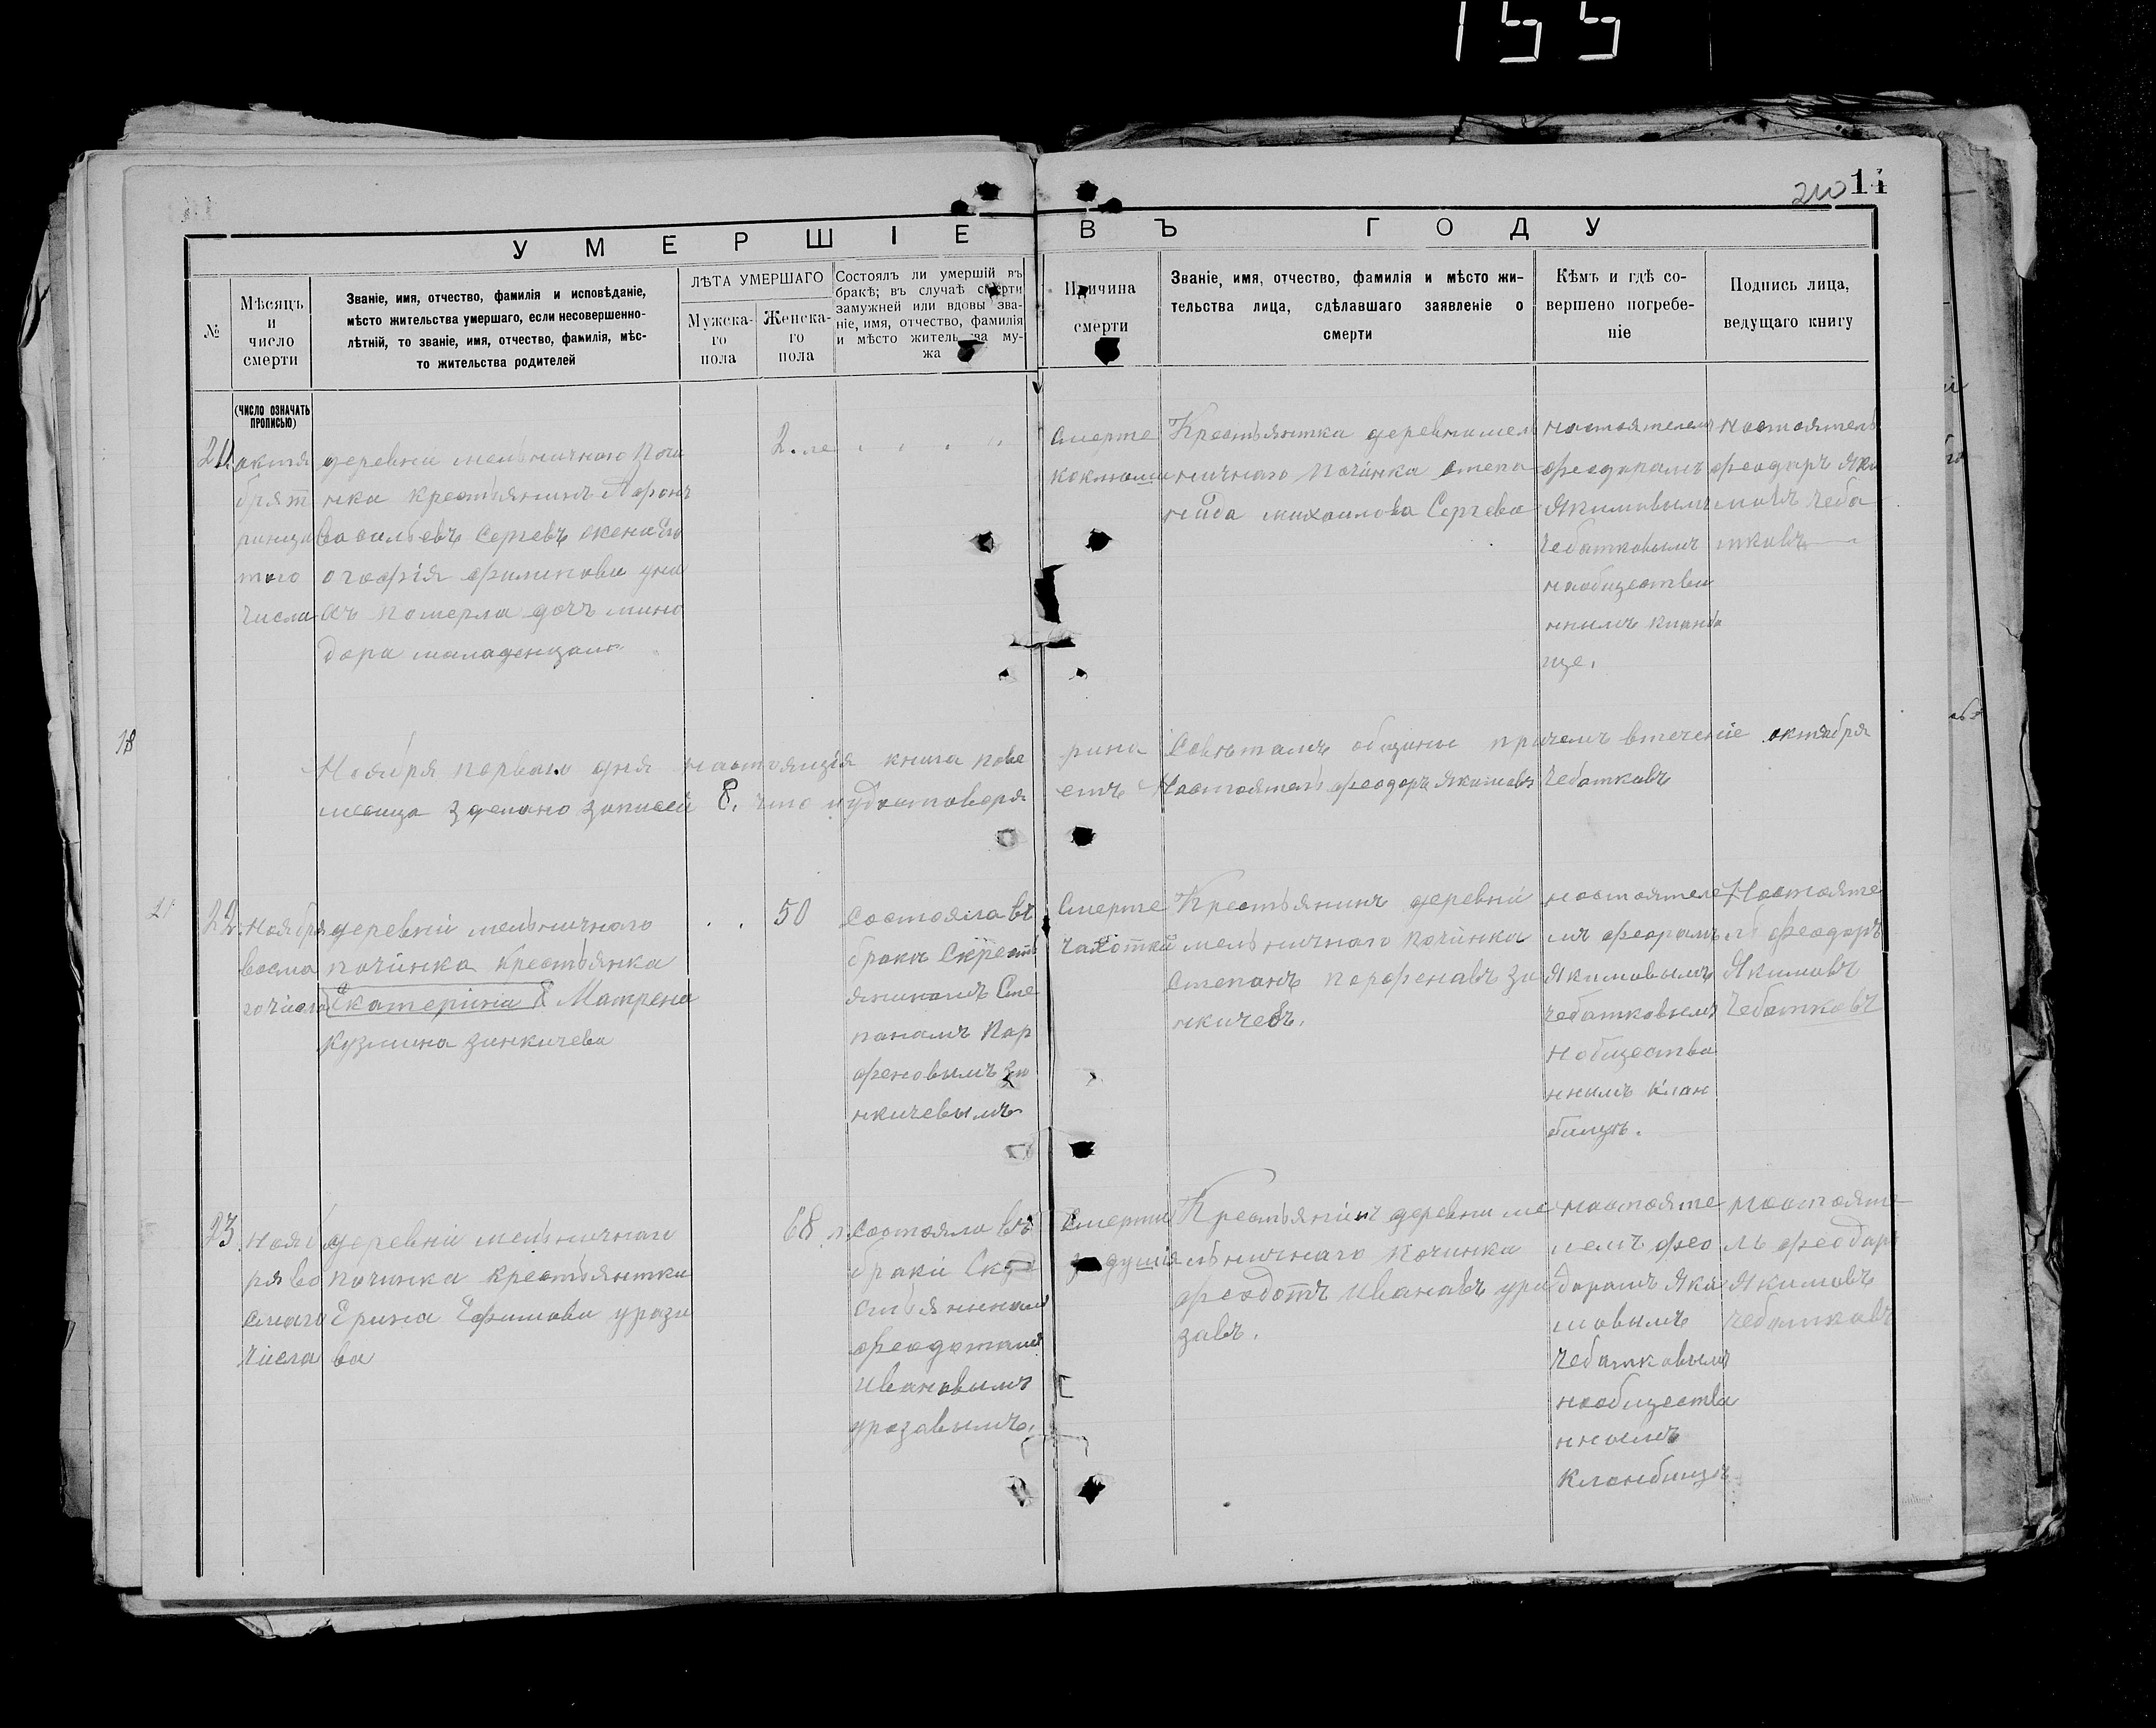 155
210 14
УМЕРШІЕ ВЪ ГОДУ
№
Мѣсяцъ
и
число
смерти
Званіе, имя, отчество, фамилія и исповѣданіе,
мѣсто жительства умершаго, если несовершенно-
лѣтній, то званіе, имя, отчество, фамилія, мѣс-
то жительства родителей
ЛѢТА УМЕРШАГО
Мужска-
го
пола
Женска-
го
пола
Состоялъ ли умершій въ
бракѣ; въ случаѣ смерти
замужней или вдовы зва-
ніе, имя, отчество, фамилія
и мѣсто жительства му-
жа
Причина
смерти
Званіе, имя, отчество, фамилія и мѣсто жи-
тельства лица, сдѣлавшаго заявленіе о
смерти
Кѣмъ и гдѣ со-
вершено погребе-
ніе
Подпись лица,
ведущаго книгу
(ЧИСЛО ОЗНАЧАТЬ
ПРОПИСЬЮ)
октя
брят
того
числа
деревни мельничнаго Почи
нка крестьянинъ
Васильевъ Сергевъ жена Ев
филипова
померла дочь мино
дора
2. ле
Смерте
Крестьянтка деревни мел
ничнаго Починка степа
нида михаилова Сергева
настоятелемъ
феодорамъ
Якимовымъ
Чебатковымъ
наобществи
ннымъ
ще.
настоятель
феодаръ Яки
мовъ Чеба
тковъ
18
Ноября перваго дня настоящія книга пове
рина Совѣтамъ общины причемъ втеченіе октября
месица зделано записей 8. что удостоверя
етъ Настоятель феодоръ Якимовъ Чебатковъ
22.
Ноября
восма
гочисла
деревни мельничнаго
починка крестьянка
Екатерина Матрена
Кузмина зинкичева
50
Состояла въ
браки Скрест
янинамъ Сте
панамъ Пар
феновымъ зи
нкичевымъ
Смерте
чахотки
Крестьянинъ деревни
мельничнаго починка
Степанъ парфенавъ зи
нкичевъ.
настояателе
Якимовымъ
Чебатковымъ
нобществи
ннымъ клан
бищъ.
Настояте
ль Феодоръ
Якимовъ
Чебатковъ
23
нояб
ря во
смаго
числа
деревни мельничнаги
починка крестьянтка
Ерина Ефимова урази
ва
68 л.
Состояла въ
браки
феодотамъ
Ивановымъ
уразавымъ.
Смерти
Крестьянинъ деревни ме
льничнаго починка
феодотъ Иванавъ ура
завъ.
настояте
лемъ фео
дорамъ Яки
мовымъ
Чебатковымъ
наобществи
ннымъ
кланбищъ
настояте
ль феодоръ
Якимовъ
Чебатковъ